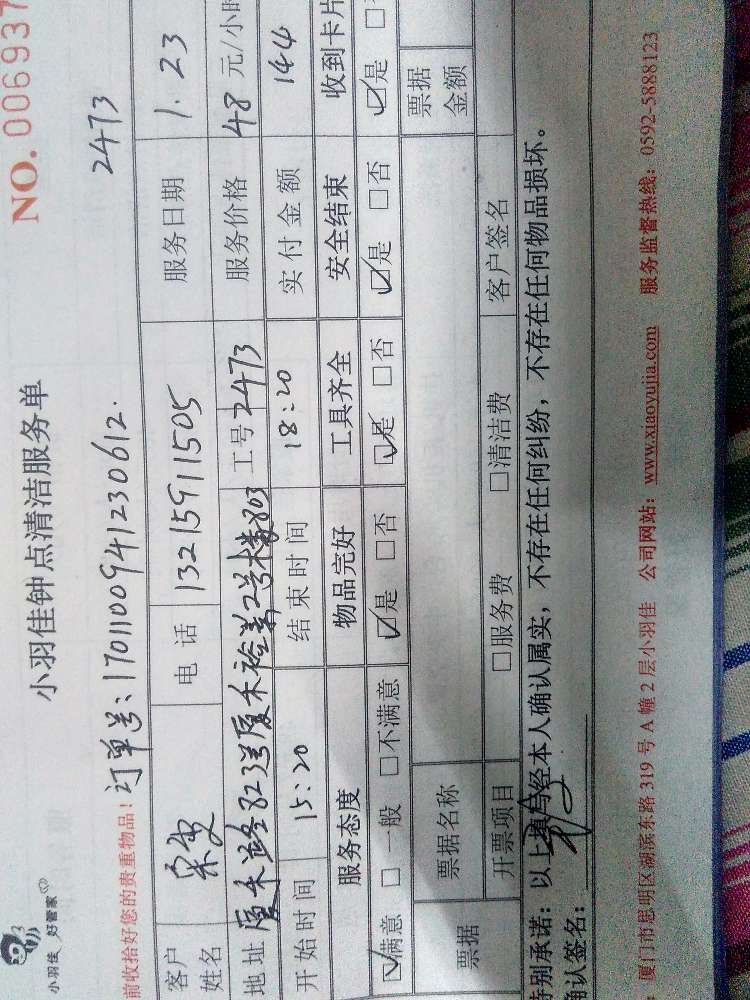 小羽佳 好管家
小羽佳钟点清洁服务单
NO. 006937
前收拾好您的贵重物品! 订单号:1701100941230612. 2473
客户姓名 电话 13215911505 服务日期 1.23
地址 厦禾路823号厦禾裕景2号楼803 工号 2473 服务价格 48元/小时
开始时间 15:20 结束时间 18:20 实付金额 144
服务态度 物品完好 工具齐全 安全结束 收到卡片
☑满意 □一般 □不满意 ☑是 □否 ☑是 □否 ☑是 □否 ☑是 □
票据 票据名称 票据金额
开票项目 □服务费 □清洁费 客户签名
特别承诺:以上填写经本人确认属实,不存在任何纠纷,不存在任何物品损坏。
确认签名:
厦门市思明区湖滨东路 319 号 A 幢 2 层小羽佳 公司网站:www.xiaoyujia.com 服务监督热线:0592-5888123